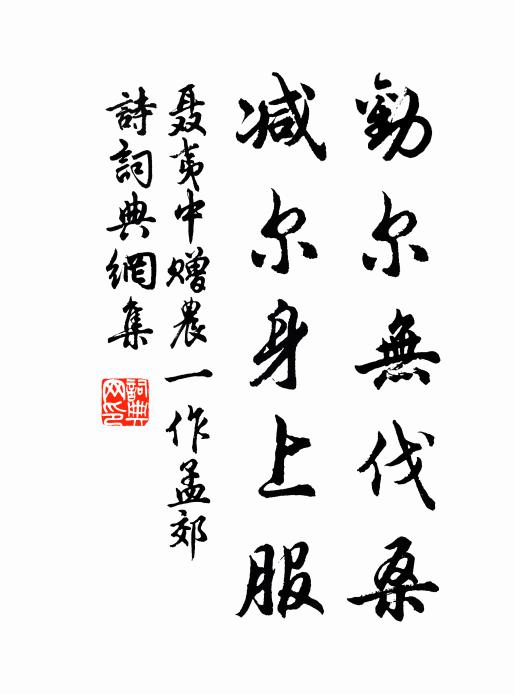 勸尔無伐桑
减尔身上服
聂夷中赠農一作孟郊
詩詞典網集
詞典
网印